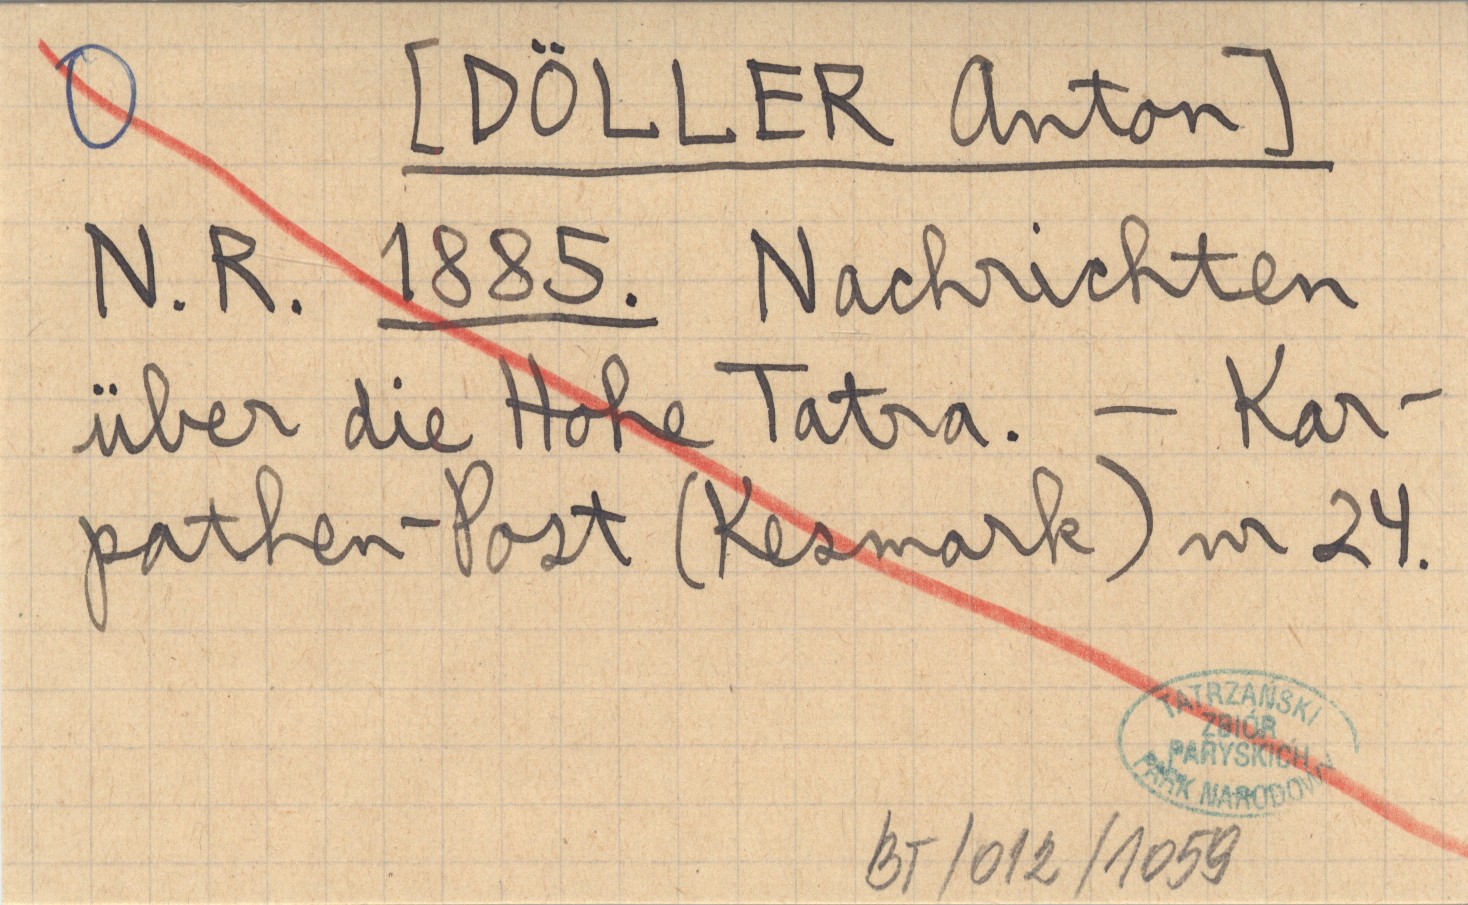 O
[DÖLLER Anton]
N.R. 1885. Nachrichten
über die Hohe Tatra. — Kar-
pathen-Post (Kesmark) nr 24.
TATRZAŃSKI
ZBIÓR
PARYSKICH
PARK NARODOWY
BT/012/1059